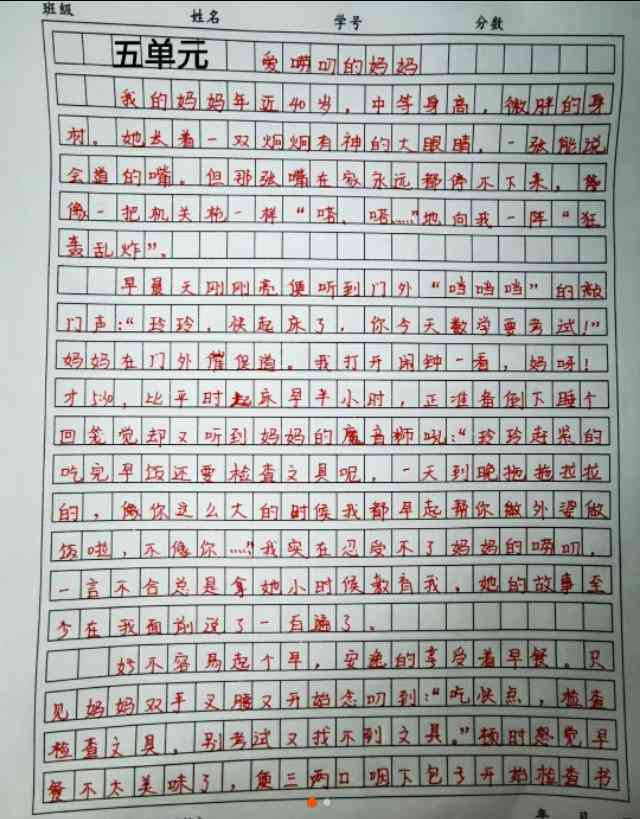 班级 姓名 学号 分数
五单元 爱唠叨的妈妈
我的妈妈年近40岁，中等身高，微胖的身
材。她长着一双炯炯有神的大眼睛，一张能说
会道的嘴。但那张嘴在家永远都停不下来，
像一把机关枪一样“嗒、嗒……”地向我一阵“狂
轰乱炸”。
早晨天刚刚亮便听到门外“咚咚咚”的敲
门声：“玲玲，快起床了，你今天数学要考试！”
妈妈在门外催促道。我打开闹钟一看，妈呀！
才5:30，比平时起床早半小时，正准备倒下睡个
回笼觉却又听到妈妈的魔音狮吼：“玲玲赶紧的
吃完早饭还要检查文具呢，一天到晚拖拖拉拉
的，像你这么大的时候我都早起帮你外婆做
饭啦，不像你……”我实在忍受不了妈妈的唠叨，
一言不合总是拿她小时候教育我，她的故事至
今在我面前说了一百遍了。
好不容易起个早，安逸的享受着早餐。只
见妈妈双手叉腰又开始念叨到：“吃快点，检查
检查文具，别考试又找不到文具。”顿时感觉早
餐不太美味了，便三两口咽下包子开始检查书
年 月